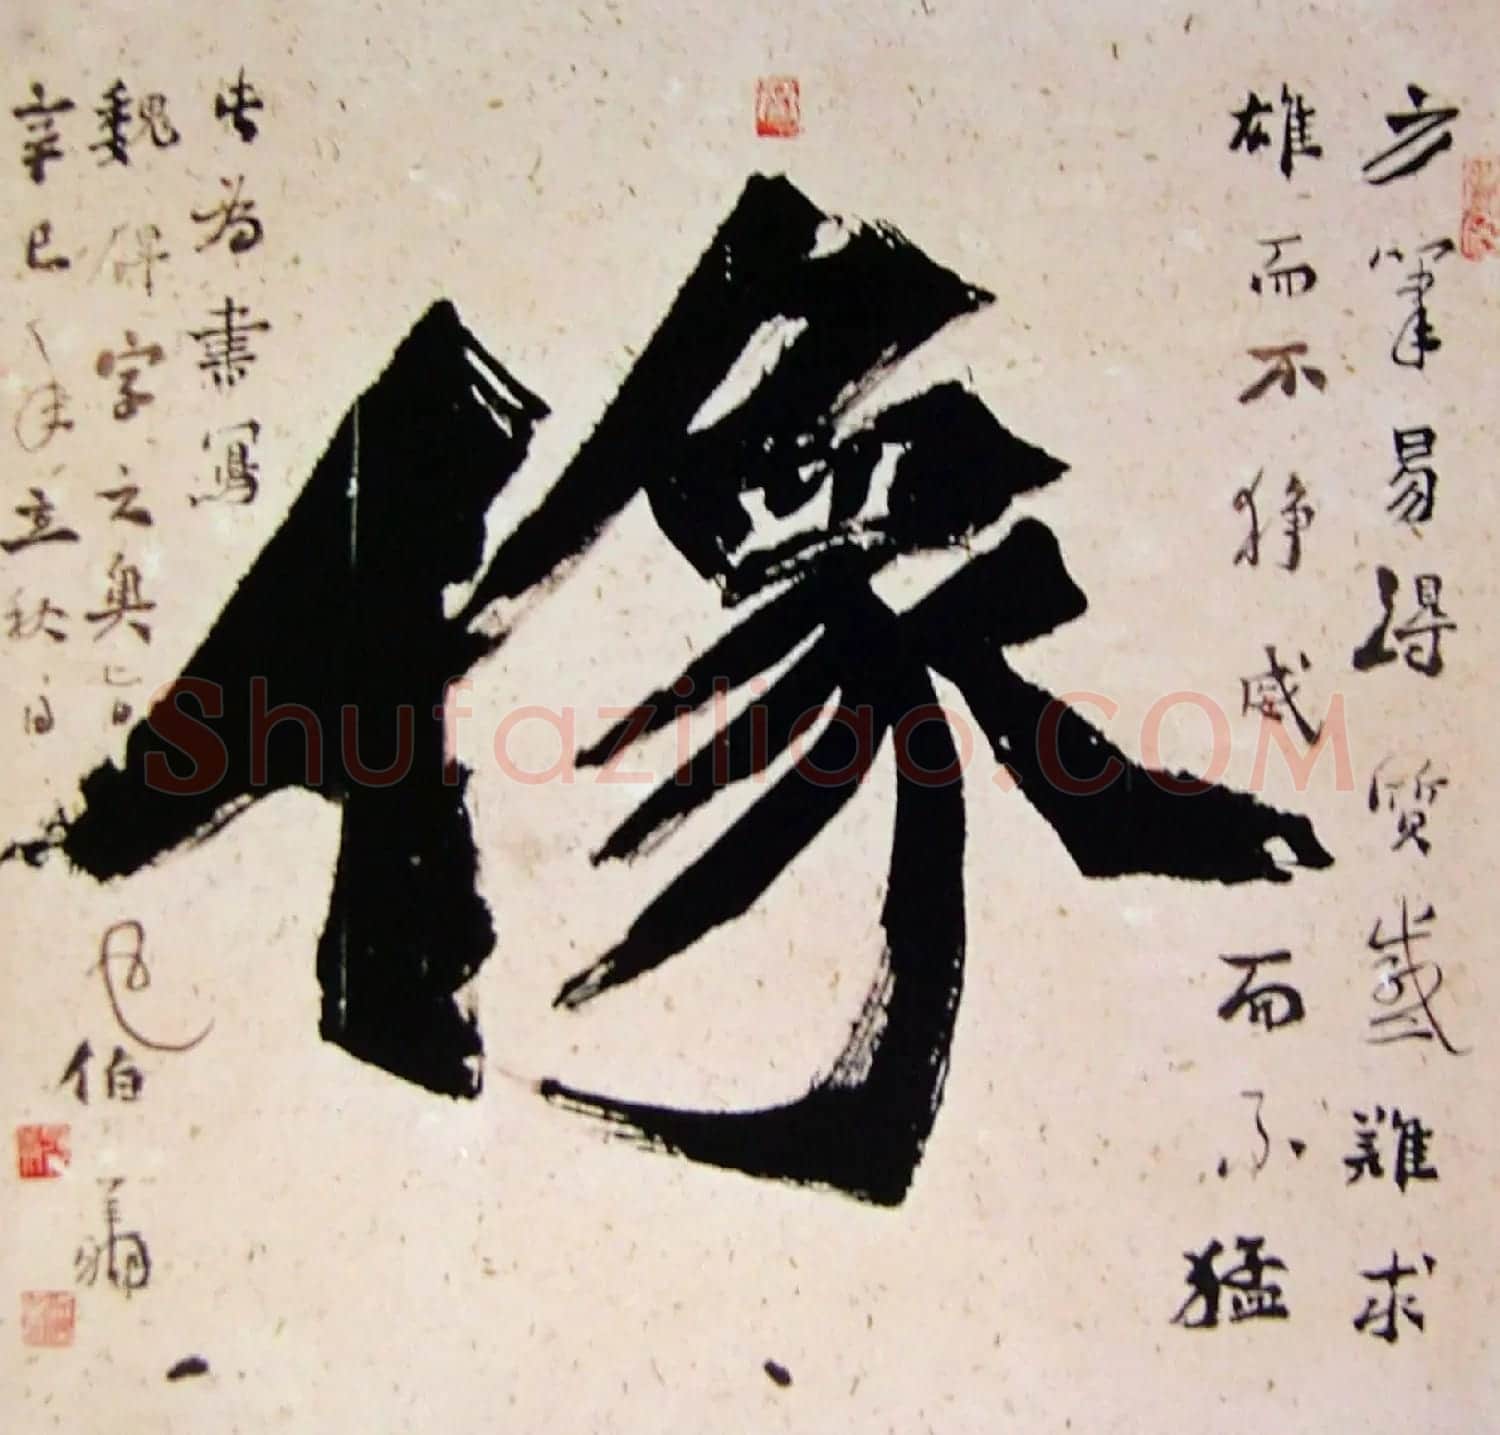 方筆易得質感難求
雄而不狰威而不猛
像
此为書寫
魏碑字之奥旨
辛巳年立秋日
伯
Shufaziliao.COM